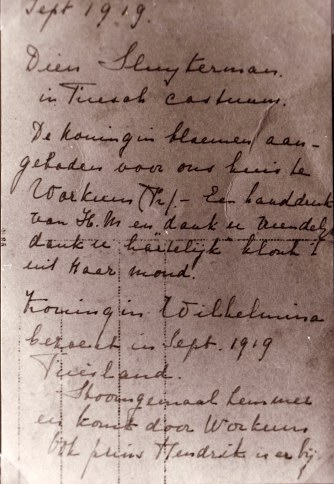 Sept 1919.
Dien Sluyterman.
in Friesch costuum.
De koningin bloemen aan-
geboden voor ons huis te
Workum (Fr). - Een handdruk
van H.M en "dank u vriendelijk
dank u hartelijk" klonk 't
uit Haar mond.
Koningin Wilhelmina
bezoekt in Sept. 1919
Friesland.
Stoomgemaal Lemmer
en komt door Workum
Ook prins Hendrik is er bij.